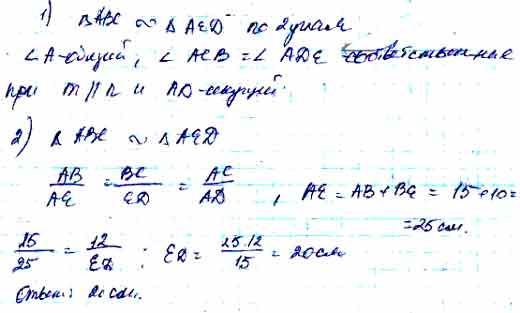 1) Δ ABC ~ Δ AED по 2 углам
∠ A-общий, ∠ ACB = ∠ ADE соответственные
при m || n и AD-секущей.
2) Δ ABC ~ Δ AED
AB/AE = BC/ED = AC/AD , AE = AB + BE = 15 + 10 =
= 25 см.
15/25 = 12/ED : ED = 25·12/15 = 20 см
Ответ: 20 см.